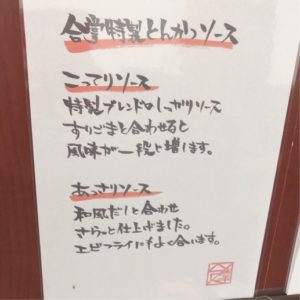 合掌特製とんかつソース
こってりソース
特製ブレンドのしっかりソース
すりごまと合わせると
風味が一段と増します。
あっさりソース
和風だしと合わせ
さらっと仕上げました。
エビフライにもよく合います。